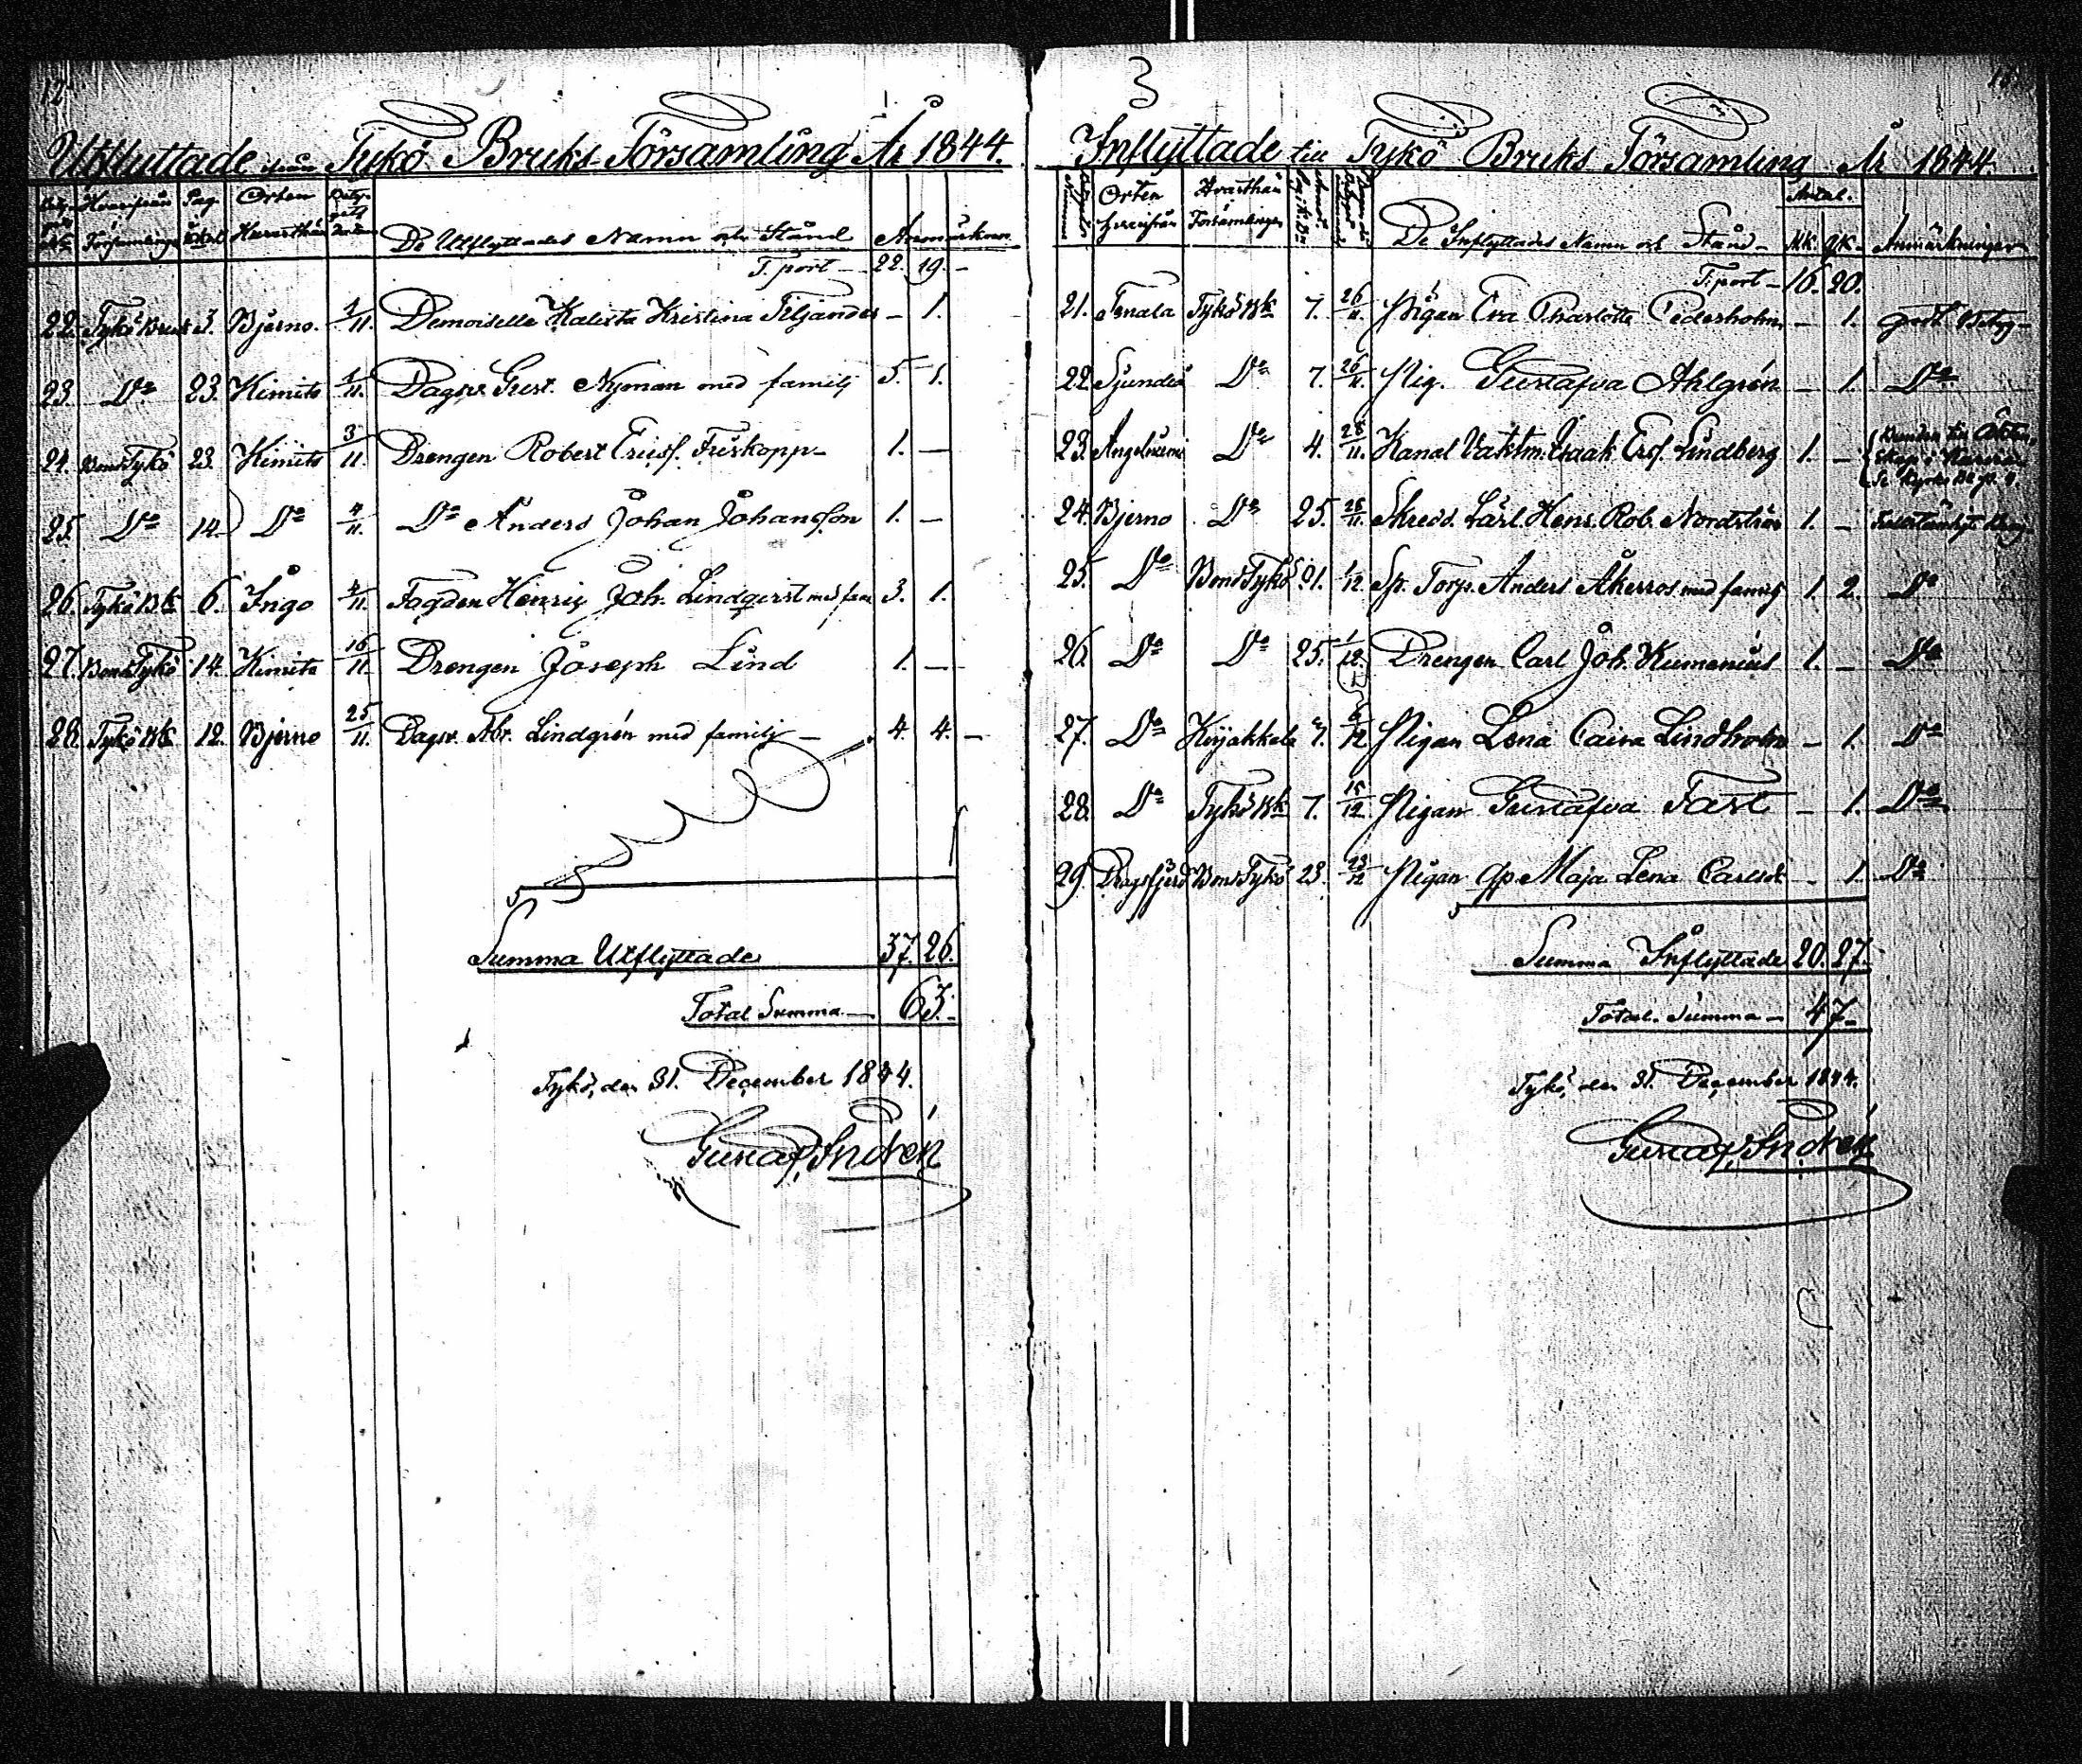 12
Utflyttade ifrån Tykö Bruks Församling År 1844.
Hvarifrån Pag. Orten
Församlingen Hvarthän De Utflyttades Namn och Stånd Anmärkn.
T. port — 22. 19. –
22. Tykö Bruk 3. Bjerno. 1/11. Demoiselle Kalixta Kristina Filjander – 1.
23. Do 23. Kimito 1/11. Dagsv. Gust. Nyman med familj 5. 1.
24. Bonds Tykö 23. Kimito 3/11. Drengen Robert Friskopp – 1. —
25. Do 14. Do 4/11. Do Anders Johan Johansson 1. —
26. Tykö Bk 6. Ingo 4/11. Henric Joh. Lindqvist med fam 3. 1.
27. Bonds Tykö 14. Kimito 16/11. Drengen Joseph Lind 1. —
28. Tykö Bk 12. Bjerno 25/11. Dagsv. Abr. Lindgrén med familj — 4. 4. –
Summa Utflyttade 37. 26.
Total Summa — 63. –
Tykö, den 31. December 1844.
Gustaf Indrén
3
Inflyttade till Tykö Bruks Församling År 1844.
Antal.
Orten Hvarthän
Hvarifrån Församlingen De Inflyttades Namn och Stånd – Mk. Qk. Anmärkningar
T. port – 16. 20.
21. Tenala Tykö Bk 7. 26/11. Pigan Eva Charlotta Cederholm – 1. godt Betyg –
22. Sjundeå Do 7. 26/11. Pig. Gustafva Ahlgrén – 1. Do
23. Angelniemi Do 4. 28/11. Kanal Vaktm. Isaak Ersf. Lindberg 1. –
24. Bjerno Do 25. 28/11. Skredd. Lärl. Henr. Rob. Nordström 1. –
25. Do Bonds Tykö 21. 1/12. Sp. Torp. Anders Åkerros med familj 1. 2. Do
26. Do Do 25. 1/12. Drengen Carl Joh. Kumenius 1. – Do
27. Do Kirjakkala 7. 8/12 Pigan Lena Caisa Lindholm – 1. Do
28. Do Tykö Bk 7. 15/12. Pigan Gustafva Fast – 1. Do
29. Dragsfjerd Bonds Tykö 23. 23/12 Pigan Maja Lena Carlsd – 1. Do
Summa Inflyttade 20. 27.
Total. Summa – 47 –
Tykö, den 31. December 1844.
Gustaf Indrén